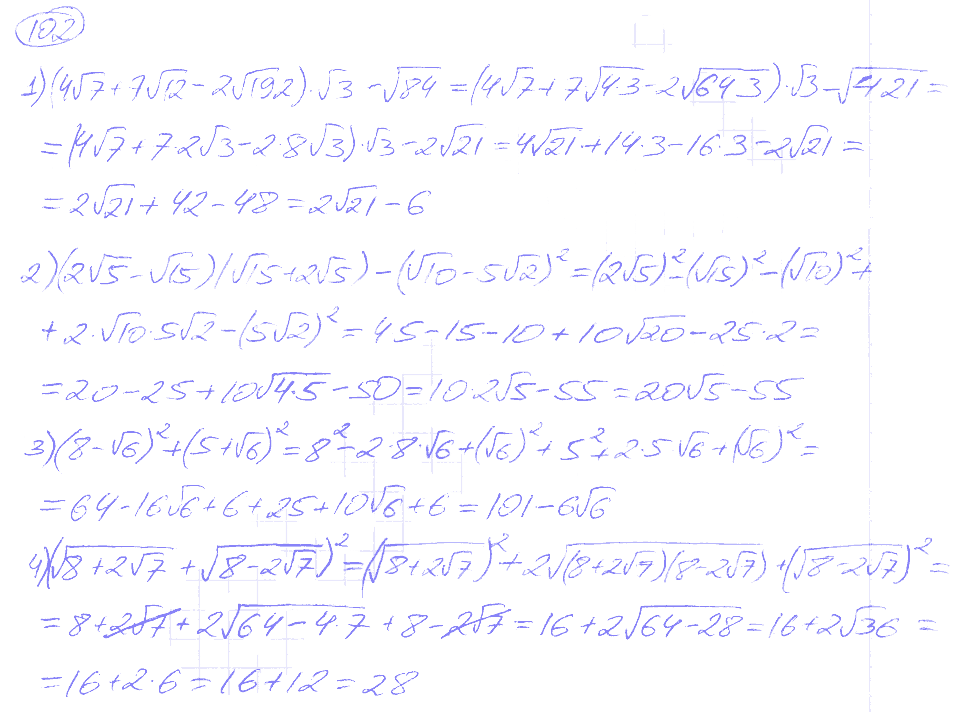 10.2
1) (4√7 + 7√12 − 2√192)·√3 − √84 = (4√7 + 7√4·3 − 2√64·3)·√3 − √4·21 =
= (4√7 + 7·2√3 − 2·8√3)·√3 − 2√21 = 4√21 + 14·3 − 16·3 − 2√21 =
= 2√21 + 42 − 48 = 2√21 − 6
2) (2√5 − √15)(√15 + 2√5) − (√10 − 5√2)² = (2√5)² − (√15)² − (√10)² +
+ 2·√10·5√2 − (5√2)² = 4·5 − 15 − 10 + 10√20 − 25·2 =
= 20 − 25 + 10√4·5 − 50 = 10·2√5 − 55 = 20√5 − 55
3) (8 − √6)² + (5 + √6)² = 8² − 2·8·√6 + (√6)² + 5² + 2·5√6 + (√6)² =
= 64 − 16√6 + 6 + 25 + 10√6 + 6 = 101 − 6√6
4) (√8 + 2√7 + √8 − 2√7)² = (√8 + 2√7)² + 2√(8 + 2√7)(8 − 2√7) + (√8 − 2√7)² =
= 8 + 2√7 + 2√64 − 4·7 + 8 − 2√7 = 16 + 2√64 − 28 = 16 + 2√36 =
= 16 + 2·6 = 16 + 12 = 28